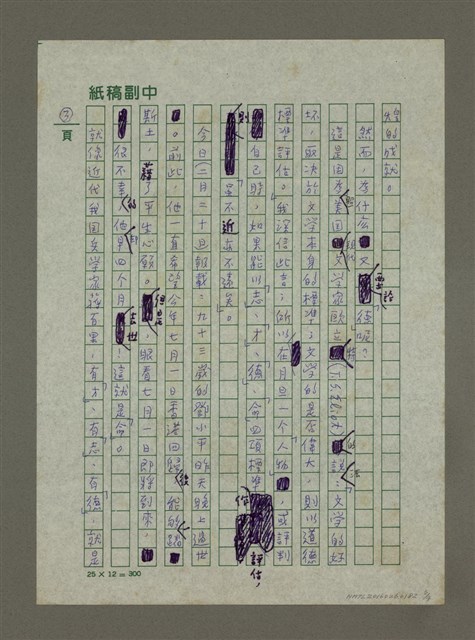 中副稿紙
③
頁
煌的成就。
然而，為什麼又要談德呢？
這是因為美國文學家歐立特(T.S. Eliot)的說：文學的好
坏，取決於文學本身的標準；文學的是否偉大，則以道德
標準評估。我深信此言；所以在月旦一個人物，或評判
自己時，如果能以「志、才、德、命」四項標準作評估，
則是不近亦不遠矣。
今日(二月二十日)報載：九十三歲的鄧小平昨天晚上逝世
。前此，他有希望今年七月一日香港回歸後能踏
斯土，藉了平生心願。但是，眼看七月一日即將到來，
很不幸的他早四個月去世！這就是命。
就像近代我國兵學家蔣百里，有才、有志、有德，就是
25 X 12 = 300